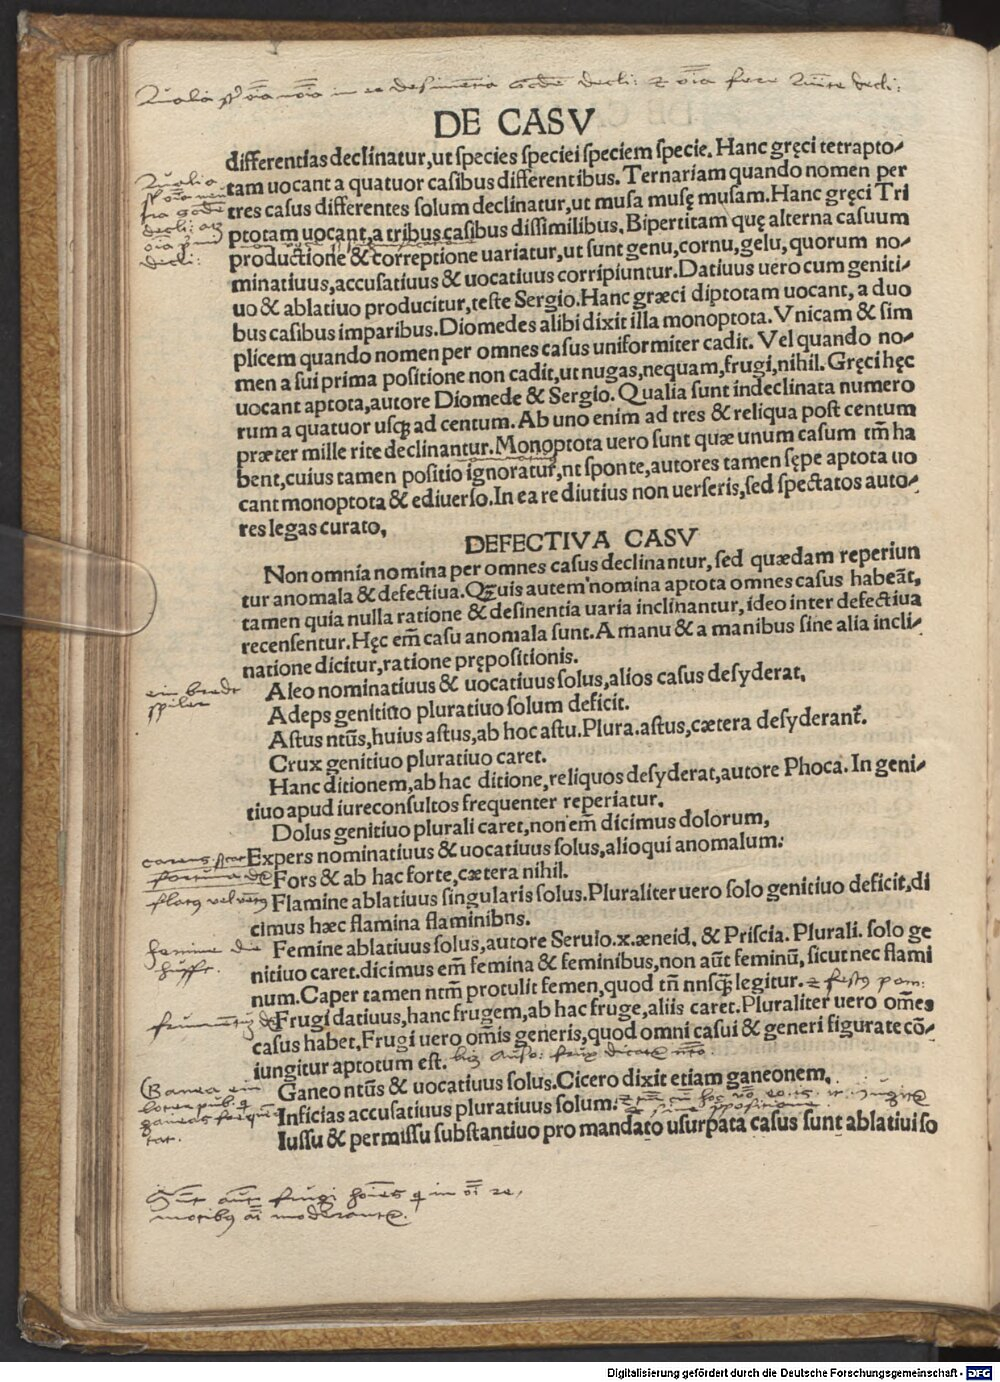 DE CASV
differentias declinatur,ut species speciei speciem specie. Hanc gręci tetrapto-
tam uocant a quatuor casibus differentibus. Ternariam quando nomen per
tres casus differentes solum declinatur,ut musa musę musam.Hanc gręci Tri
ptotam uocant,a tribus casibus dissimilibus. Bipertitam quę alterna casuum
productione & correptione uariatur,ut sunt genu,cornu,gelu,quorum no-
minatiuus,accusatiuus & uocatiuus corripiuntur.Datiuus uero cum geniti-
uo & ablatiuo producitur,teste Sergio.Hanc græci diptotam uocant, a duo
bus casibus imparibus.Diomedes alibi dixit illa monoptota. Vnicam & sim
plicem quando nomen per omnes casus uniformiter cadit. Vel quando no-
men a sui prima positione non cadit,ut nugas,nequam,frugi,nihil. Gręci hęc
uocant aptota,autore Diomede & Sergio. Qualia sunt indeclinata numero
rum a quatuor usqꝫ ad centum. Ab uno enim ad tres & reliqua post centum
præter mille rite declinantur. Monoptota uero sunt quæ unum casum tm̄ ha
bent,cuius tamen positio ignoratur,nt sponte,autores tamen sępe aptota uo
cant monoptota & ediuerso.In ea re diutius non uerseris,sed spectatos auto-
res legas curato,
DEFECTIVA CASV
Non omnia nomina per omnes casus declinantur, sed quædam reperiun
tur anomala & defectiua.Qꝫuis autem nomina aptota omnes casus habeãt,
tamen quia nulla ratione & desinentia uaria inclinantur, ideo inter defectiua
recensentur. Hęc em̄ casu anomala sunt. A manu & a manibus sine alia incli-
natione dicitur,ratione prępositionis.
Aleo nominatiuus & uocatiuus solus,alios casus desyderat,
Adeps genitiuo pluratiuo solum deficit.
Astus ntūs,huius astus,ab hoc astu.Plura.astus,cætera desyderant̄.
Crux genitiuo pluratiuo caret.
Hanc ditionem,ab hac ditione,reliquos desyderat,autore Phoca. In geni-
tiuo apud iureconsultos frequenter reperiatur.
Dolus genitiuo plurali caret,non em̄ dicimus dolorum,
Expers nominatiuus & uocatiuus solus,alioqui anomalum.
Fors & ab hac forte,cætera nihil.
Flamine ablatiuus singularis solus.Pluraliter uero solo genitiuo deficit,di
cimus hæc flamina flaminibns.
Femine ablatiuus solus,autore Seruio.x.æneid, & Priscia. Plurali. solo ge
nitiuo caret.dicimus em̄ femina & feminibus,non aūt feminū, sicut nec flami
num.Caper tamen ntm̄ protulit femen,quod tn̄ nnsqꝫ legitur.
Frugi datiuus,hanc frugem,ab hac fruge,aliis caret.Pluraliter uero om̄es
casus habet.Frugi uero om̄is generis,quod omni casui & generi figurate cō-
iungitur aptotum est.
Ganeo ntūs & uocatiuus solus.Cicero dixit etiam ganeonem,
Inficias accusatiuus pluratiuus solum.
Iussu & permissu substantiuo pro mandato usurpata casus sunt ablatiui so
Digitalisierung gefördert durch die Deutsche Forschungsgemeinschaft - DFG